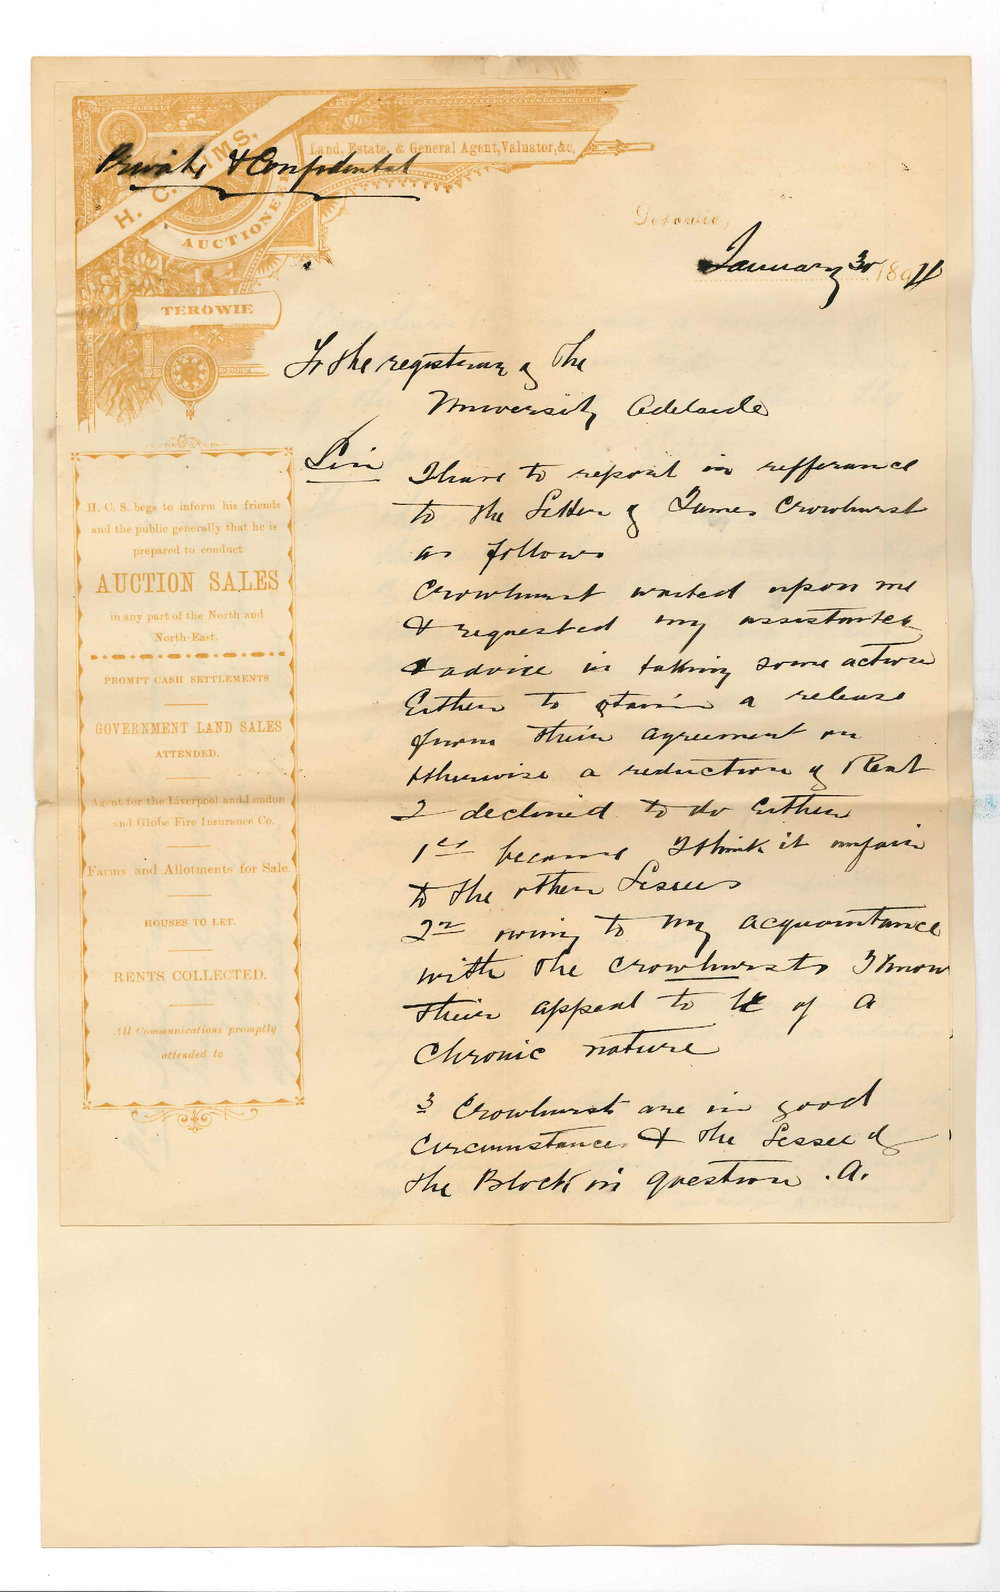 Land, Estate, & General Agent, Valuator, &c.
Private & Confidental
H. C. SIMS.
AUCTIONEER
TEROWIE
Terowie,
January 30 1894
To the registrar of the
University Adelaide
Sir
I have to report in refferance
to the Letter of James Crowhurst
as follows
Crowhurst waited upon me
& requested my assistance
& advice in taking some action
Either to obtain a release
from their agreement or
otherwise a reduction of Rent
I declined to do Either
1st because I think it unfair
to the other Lessees
2n owing to my acquaintance
with the Crowhursts I know
their appeal to be of a
Chronic nature
3 Crowhursts are in good
Circumstances & the Lessee of
the Block in question . A.
H. C. S. begs to inform his friends
and the public generally that he is
prepared to conduct
AUCTION SALES
in any part of the North and
North-East.
PROMPT CASH SETTLEMENTS
GOVERNMENT LAND SALES
ATTENDED.
Agent for the Liverpool and London
and Globe Fire Insurance Co.
Farms and Allotments for Sale.
HOUSES TO LET.
RENTS COLLECTED.
All Communications promptly
attended to